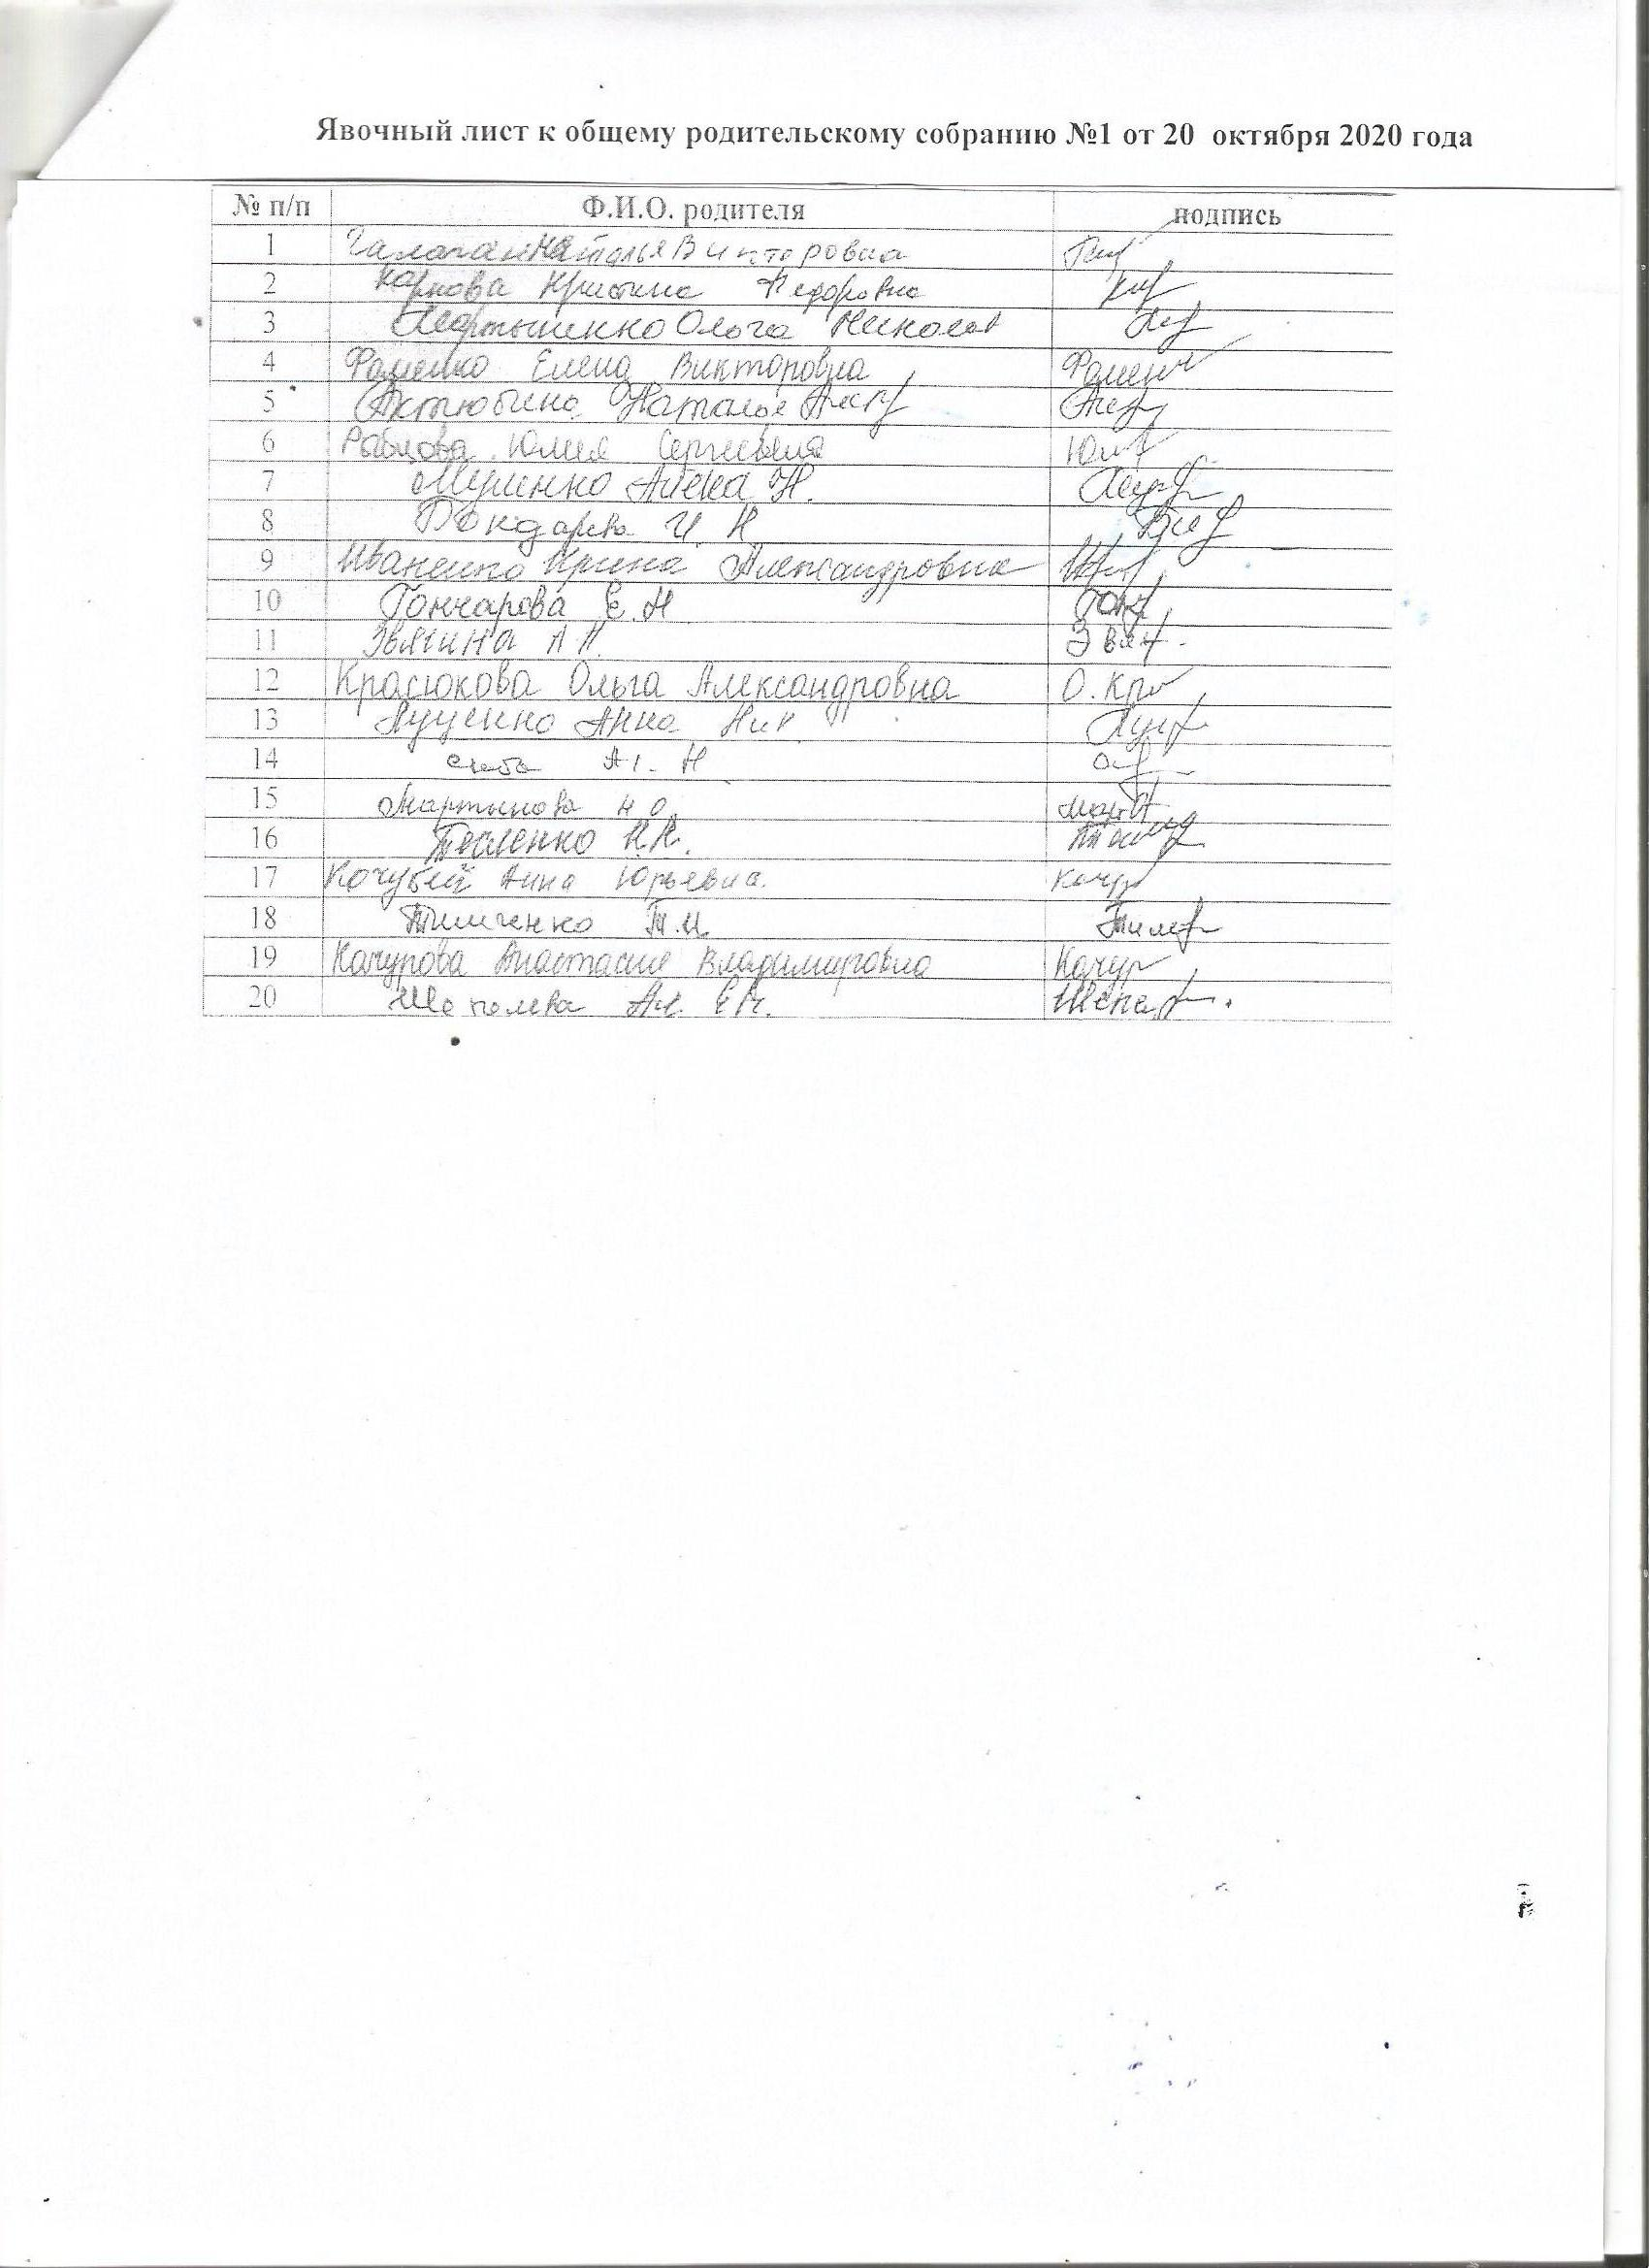 Явочный лист к общему родительскому собранию №1 от 20 октября 2020 года
№ п/п Ф.И.О. родителя подпись
1 Галаган Наталья Викторовна
2 Карпова Кристина Федоровна
3 Мартыненко Ольга Николаев
4 Фоменко Елена Викторовна
5 Актюбина Наталья
6 Юлия Сергеевна Юл
7 Алена Н.
8 Бондарева И. Н
9 Иваненко Ирина Александровна
10 Гончарова Е. Н Гонч
11 Звягина Звяг
12 Красюкова Ольга Александровна О. Кра
13 Луценко Анна Ник
14
15 Мартынова Н О. Март
16 Тесленко Н.Н.
17 Кочубей Анна Юрьевна. Кочу
18 Тимченко Т.И.
19 Качурова Анастасия Владимировна Качур
20 Шепелева